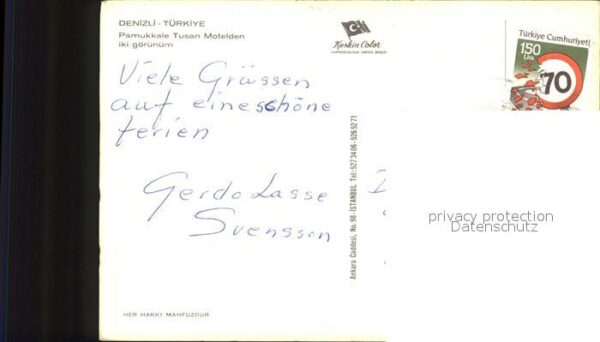 DENİZLİ - TÜRKİYE
Pamukkale Tusan Motelden
iki görünüm
Keskin Color
Türkiye Cumhuriyeti
150
Lira
70
Viele Grüssen
auf eine schöne
ferien
Gerdo Lasse
Svensson
Ankara Caddesi, No. 98 - İSTANBUL Tel: 5273406-5265271
privacy protection
Datenschutz
HER HAKKI MAHFUZDUR